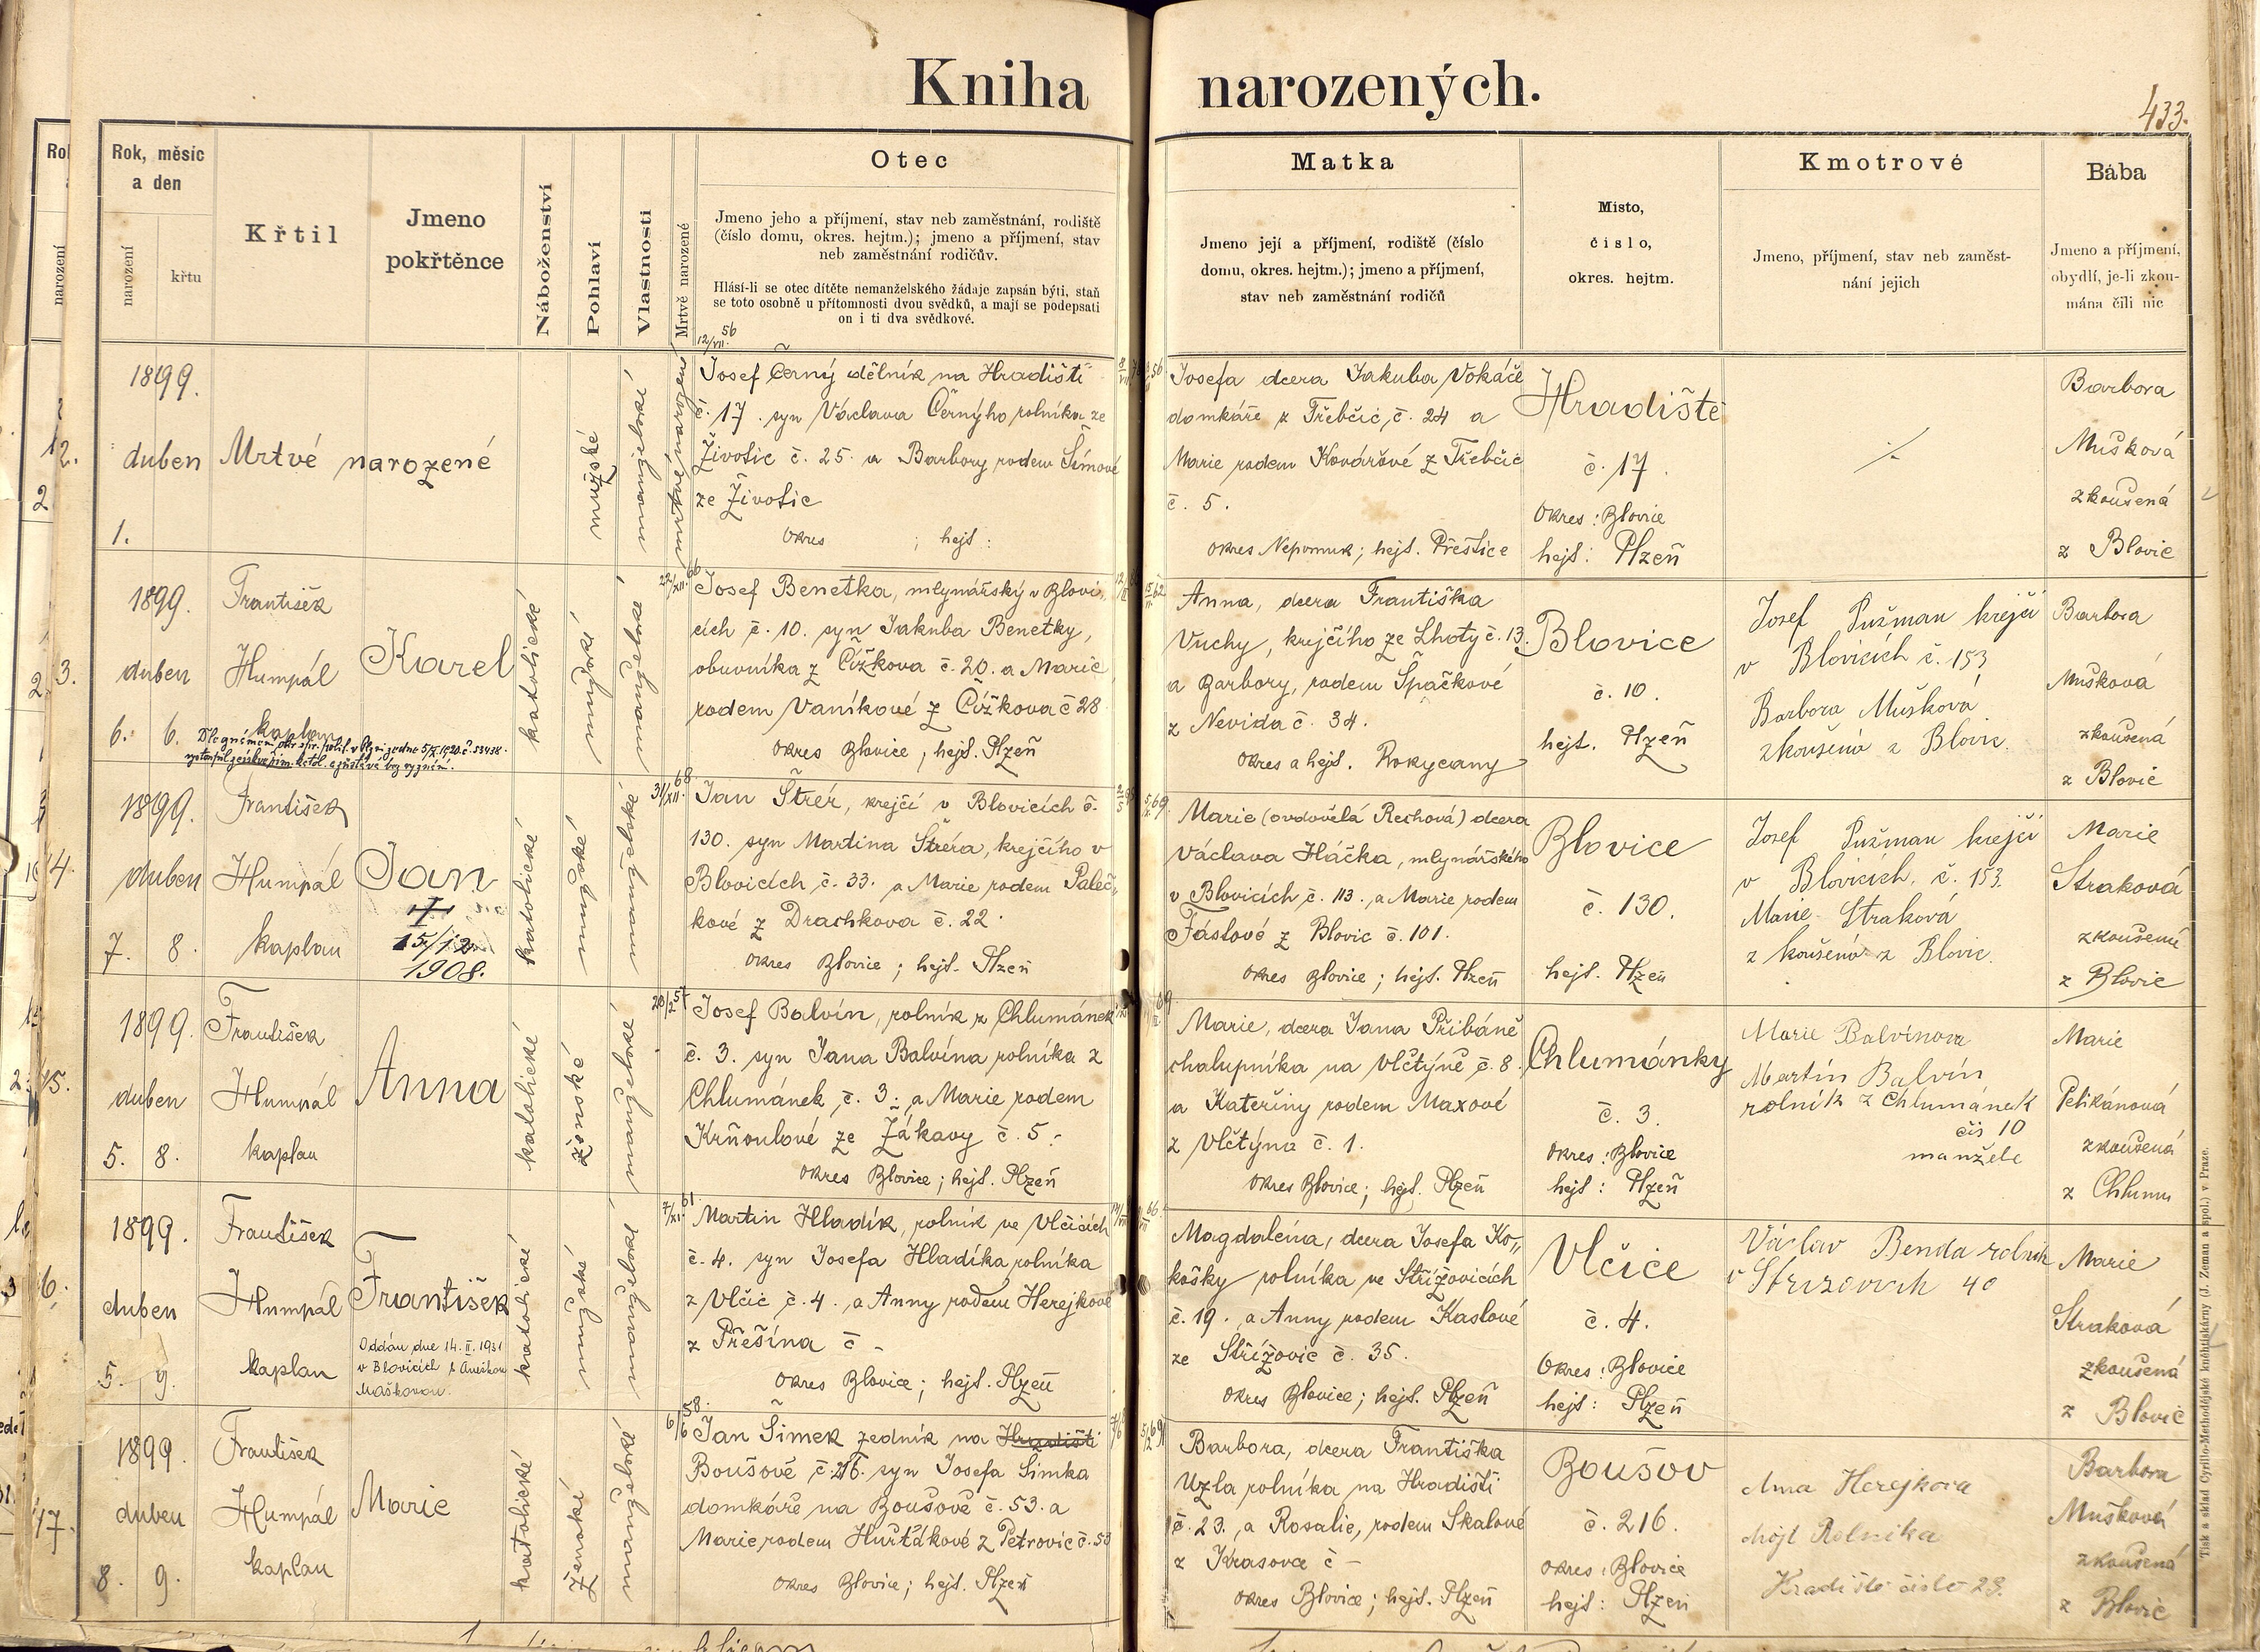 Kniha narozených.
433.
Rok, měsíc
a den
narození
křtu
Křtil
Jmeno
pokřtěnce
Náboženství
Pohlaví
Vlastnosti
Mrtvě narozené
Otec
Jmeno jeho a příjmení, stav neb zaměstnání, rodiště
(číslo domu, okres. hejtm.); jmeno a příjmení, stav
neb zaměstnání rodičův.
Hlásí-li se otec dítěte nemanželského žádaje zapsán býti, staň
se toto osobně u přítomnosti dvou svědků, a mají se podepsati
on i ti dva svědkové.
Matka
Jmeno její a příjmení, rodiště (číslo
domu, okres. hejtm.); jmeno a příjmení,
stav neb zaměstnání rodičů
Místo,
číslo,
okres. hejtm.
Kmotrové
Jmeno, příjmení, stav neb zaměst-
nání jejich
Bába
Jmeno a příjmení,
obydlí, je-li zkou-
mána čili nic
12.
1899.
duben
1.
Mrtvé narozené
mužské
manželské
12/VII. 56
Josef Černý dělník na Hradišti
č. 17. syn Václava Černýho rolníka ze
Životic č. 25. a Barbory rodem Šímové
ze Životic
okres ; hejt :
Josefa dcera Jakuba Vokáče
domkáře z Třebčic, č. 24 a
Marie rodem Kovářové z Třebčic
č. 5.
okres Nepomuk; hejt. Přeštice
Hradiště
č. 17.
okres : Blovice
hejt : Plzeň
Barbora
Mušková
zkoušená
z Blovic
3.
1899.
duben
6. 6.
František
Humpál
kaplan
Karel
katolické
mužské
manželské
22/XII. 66
Josef Benetka, mlynářský v Blovi„
cích č. 10. syn Jakuba Benetky,
obuvníka z Čížkova č. 20. a Marie
rodem Vaníkové z Čížkova č 28
okres Blovice ; hejt. Plzeň
Anna, dcera Františka
Vuchy, krejčího ze Lhoty č. 13.
a Barbory, rodem Špačkové
z Nevida č. 34.
okres a hejt. Rokycany
Blovice
č. 10.
hejt. Plzeň
Josef Pužman krejčí
v Blovicích č. 153
Barbora Mušková
zkoušená z Blovic.
Barbora
Mušková
zkoušená
z Blovic
4.
1899.
duben
7. 8.
František
Humpál
kaplan
Jan
15/12
1908.
katolické
mužské
manželské
31/XII. 68
Jan Štrér, krejčí v Blovicích č.
130. syn Martina Štréra, krejčího v
Blovicích č. 33. a Marie rodem Paleč„
kové z Drachkova č. 22.
okres Blovice ; hejt. Plzeň
Marie (ovdovělá Rechová) dcera
Václava Háčka, mlynářského
v Blovicích č. 113. a Marie rodem
Fáslové z Blovic č. 101.
okres Blovice ; hejt. Plzeň
Blovice
č. 130.
hejt. Plzeň
Josef Pužman krejčí
v Blovicích. č. 153.
Marie Straková
zkoušená z Blovic.
Marie
Straková
zkoušená
z Blovic
15.
1899.
duben
5. 8.
František
Humpál
kaplan
Anna
katolické
ženské
manželské
Josef Balvín, rolník z Chlumánek
č. 3. syn Jana Balvína rolníka z
Chlumánek, č. 3. a Marie rodem
Krňoulové ze Žákavy č. 5.
okres Blovice ; hejt. Plzeň
Marie, dcera Jana Přibáně
chalupníka na Vlčtýně č. 8.
a Kateřiny rodem Maxové
z Vlčtýna č. 1.
okres Blovice ; hejt. Plzeň
Chlumánky
č. 3.
okres : Blovice
hejt : Plzeň
Marie Balvínova
Martín Balvín
rolník z Chlumánek
čís 10
manžele
Marie
Pelikánová
zkoušená
z Chlumu
6.
1899.
duben
5. 9.
František
Humpál
kaplan
František
Oddán dne 14. II. 1931
v Blovicích s Anežkou
Maškovou.
katolické
mužské
manželské
7/XI. 61.
Martin Hladík, rolník ve Vlčicích
č. 4. syn Josefa Hladíka, rolníka
z Vlčic č. 4. a Anny rodem Herejkové
z Přešína č -
okres Blovice ; hejt. Plzeň
Magdaléna, dcera Josefa Ko„
košky rolníka ve Střížovicích
č. 19. a Anny rodem Kaslové
ze Střížovic č. 35.
okres Blovice ; hejt. Plzeň
Vlčice
č. 4.
Okres : Blovice
hejt : Plzeň
Václav Benda rolník
v Strizovich 40
Marie
Straková
zkoušená
z Blovic
17.
1899.
duben
8. 9.
František
Humpál
kaplan
Marie
katolické
ženské
manželské
6/6 58.
Jan Šimek zedník na Hradišti
Boušově č. 216. syn Josefa Šimka
domkáře na Boušově č. 53. a
Marie rodem Hurťákové z Petrovic č. 53
okres Blovice ; hejt. Plzeň
Barbora, dcera Františka
Uzla rolníka na Hradišti
č. 23. a Rosalie, rodem Skalové
z Krasova č -
okres Blovice ; hejt. Plzeň
Boušov
č. 216.
okres : Blovice
hejt : Plzeň
Anna Herejkova
choť Rolníka
Hradiště číslo 23.
Barbora
Mušková
zkoušená
z Blovic
Tisk a sklad Cyrillo-Methodějské knihtiskárny (J. Zeman a spol.) v Praze.